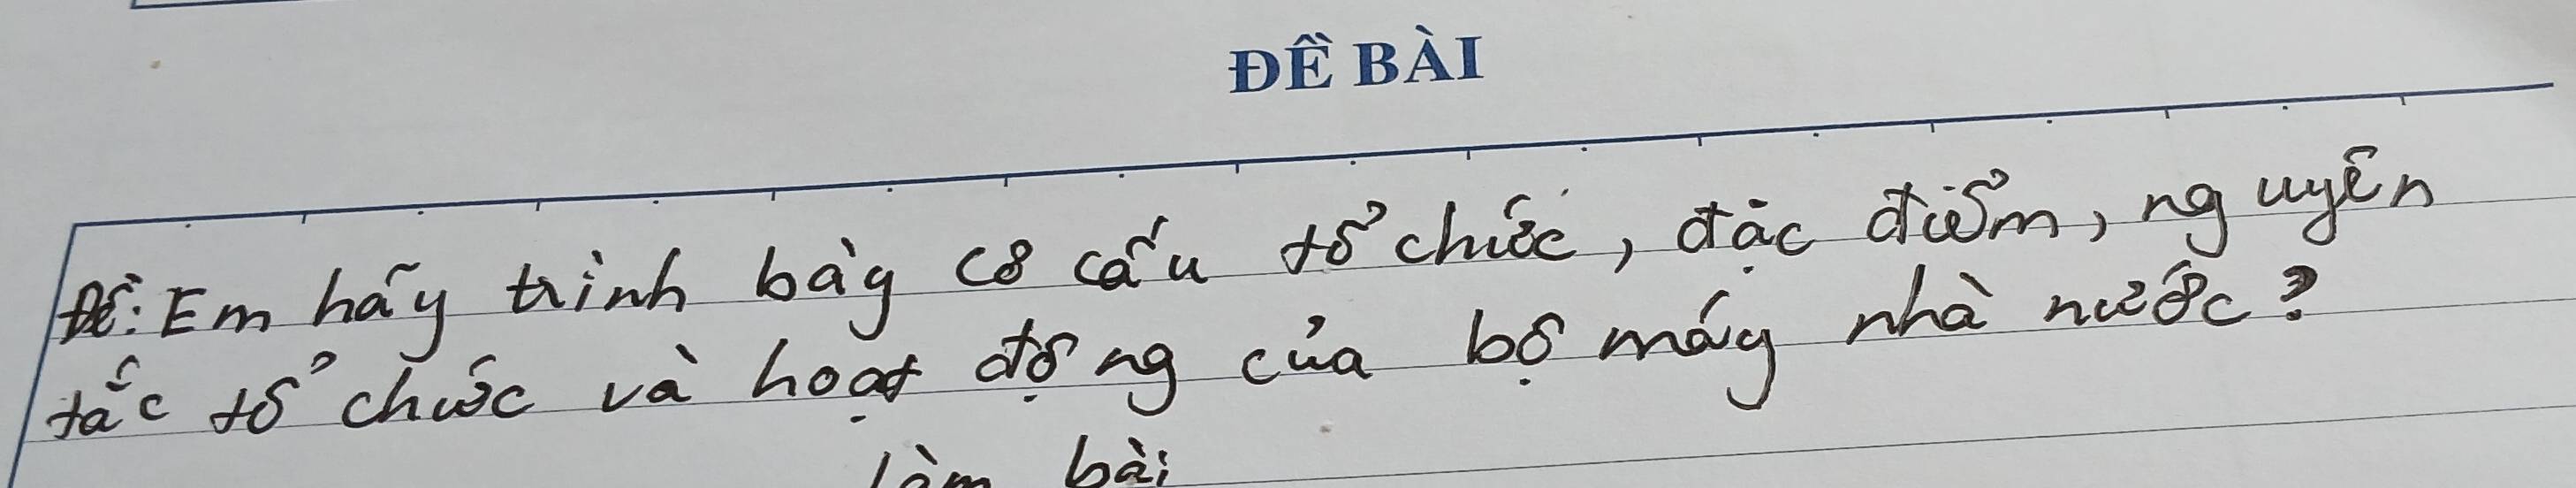 ĐỀ BÀI
Đề: Em hãy trình bày cơ cấu tổ chức, đặc điểm, nguyên
tắc tổ chức và hoạt động của bộ máy nhà nước?
làm bài